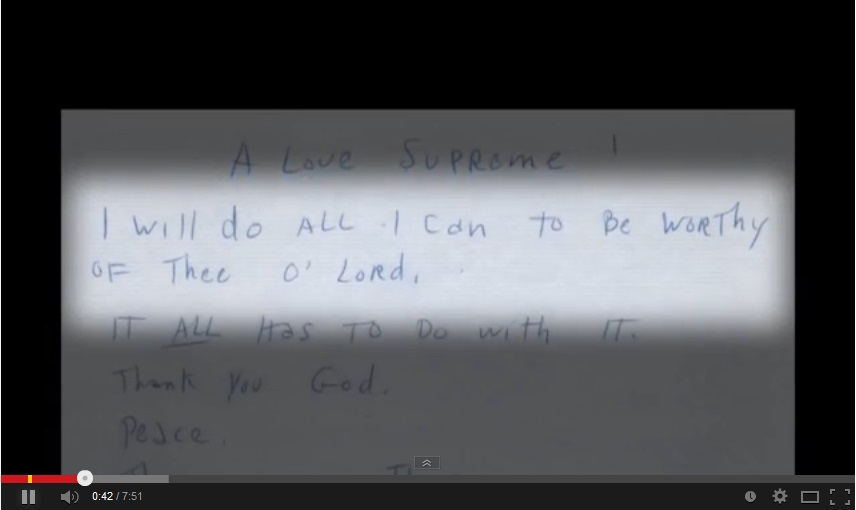 A Love Supreme !
I will do ALL I can to Be WORThy
OF Thee O' LoRd.
IT ALL Has TO Do with IT.
Thank You God.
Peace.
0:42 / 7:51